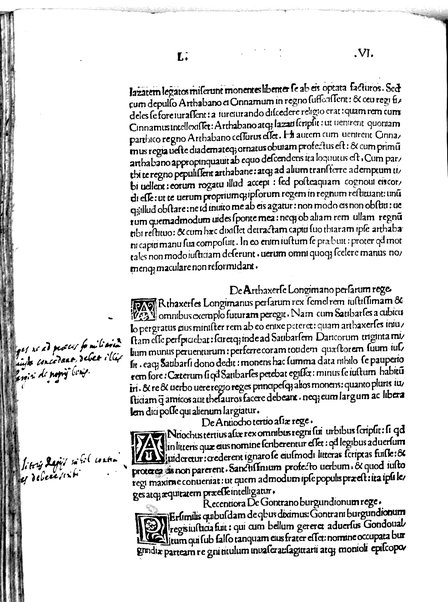 L. .VI.
Iazatem legatos miserunt monentes libenter se ab eis optata facturos. Sed
cum depulso Arthabano ei Cinnamum in regno suffecissent: & ceu regi fi⸗
deles se fore iurassent: a iureiurando discedere religio erat: quam rem cum
Cinnamus intellexisset: Arthabano atq; Iazati scripsit: ut uenirent quoniam
parthico regno Arthabano cessurus esset. Hi autem cum uenirent Cinna⸗
mus regia ueste diademateq; ornatus obuiam profectus est: & cum primū
arthabano appropinquauit ab equo descendens ita loquutus est. Cum par⸗
thi te regno pepulissent arthabane: atq; ad alium transferre ademptum ti⸗
bi uellent: eorum rogatu illud accepi: sed posteaquam cognoui eis cor⸗
di esse: ut te uerum propriumq; ipsorum regem in regnum restituant: unū
q; illud obstare: ne id inuito me ab eis agatur: non modo eis non obstiti: ue⸗
rum quemadmodum uides sponte mea: neq; ob aliam rem ullam regnū
tibi restituo: & cum hæc dixisset detractam capiti suo thiaram ipse arthaba
ni capiti manu sua composuit. In eo enim iustum se præbuit: præter qd mor
tales non modo iusticiam deserunt. uerum omni quoq; scelere manus no⸗
menq; maculare non reformidant.
De Arthaxerse Longimano persarum rege.
ARthaxerses Longimanus persarum rex semel rem iustissimam &
omnibus exemplo futuram peregit. Nam cum Satibarses a cubicu
lo pergratus eius minister rem ab eo enixe peteret: quam arthaxerses iniu⸗
stam esse perspiciebat: sciretq; inde ad Satibarsem Daricorum triginta mi
llium munus peruenturum: perferre coram eodem quæstorem suum ius⸗
sit. eaq; Satibarsi dono dedit: monens hac summa data nihilo se pauperio
rem fore. Cæterum si qd Satibarses petebat egisset: minus se iustum habitū
iri. & re & uerbo uere regio reges principesq; alios monens: quanto pluris iu
sticiam q̄ amicos aut thesauros facere debeant. neq; eum largum ac libera
lem dici posse qui alienum largiatur.
De Antiocho tertio asiæ rege.
ANtiochus tertius asiæ rex omnibus regni sui urbibus scripsit: si qd
in litteris quæ eius nomine scriberentur esset: qd legibus aduersum
uideretur: crederent ignaro se eiusmodi litteras scriptas fuisse: &
propterea eis non parerent. Sanctissimum profecto uerbum: & quod iusto
regi maxime conueniat: ut quem admodum ipse populis præest: ita ipsi le⸗
ges atq; æquitatem præesse intelligatur.
Recentiora De Gontrano burgundionum rege.
PErsimilis quibusdam de qbus diximus: Gontrani burgundionum
regis iusticia fuit: qui cum bellum gereret aduersus Gondoual⸗
tum qui sub falso tanquam eius frater esset: nomine occupata bur
gundiæ partem regni titulum inuaserat: sagittarii atq; monioli episcopo⸗